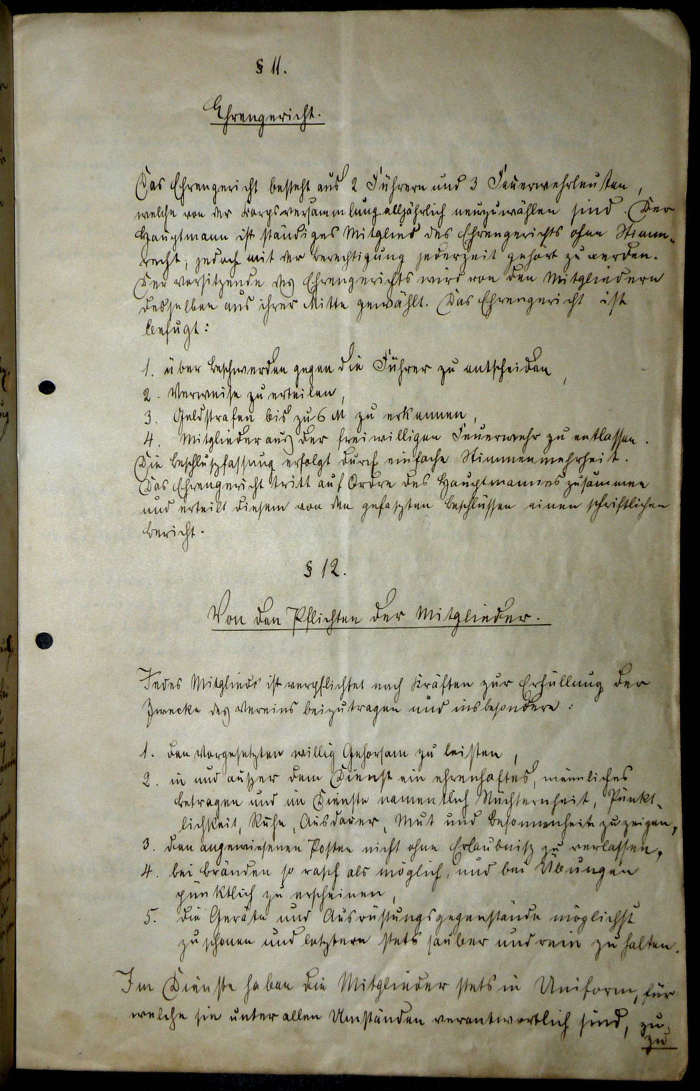 § 11.
Ehrengericht.
Das Ehrengericht besteht aus 2 Führern und 3 Feuerwehrleuten,
welche von der Korpsversammlung alljährlich neu zu wählen sind. Der
Hauptmann ist ständiges Mitglied des Ehrengerichts ohne Stimm-
recht, jedoch mit der Berechtigung jederzeit gehört zu werden.
Der Vorsitzende des Ehrengerichts wird von den Mitgliedern
desselben aus ihrer Mitte gewählt. Das Ehrengericht ist
befugt:
1. über Beschwerden gegen die Führer zu entscheiden,
2. Verweise zu erteilen,
3. Geldstrafen bis zu 6 M zu erkennen,
4. Mitglieder aus der freiwilligen Feuerwehr zu entlassen.
Die Beschlußfassung erfolgt durch einfache Stimmenmehrheit.
Das Ehrengericht tritt auf Ordre des Hauptmannes zusammen
und erteilt diesem von den gefaszten Beschlüssen einen schriftlichen
Bericht.
§ 12.
Von den Pflichten der Mitglieder.
Jedes Mitglied ist verpflichtet nach Kräften zur Erfüllung der
Zwecke des Vereins beizutragen und insbesondere:
1. den Vorgesetzten willig Gehorsam zu leisten,
2. in und auszer dem Dienst ein ehrenhaftes, männliches
Betragen und im Dienste namentlich Nüchternheit, Pünkt-
lichkeit, Ruhe, Ausdauer, Mut und Besonnenheit zu zeigen,
3. den angewiesenen Posten nicht ohne Erlaubnisz zu verlassen,
4. bei Bränden so rasch als möglich, und bei Übungen
pünktlich zu erscheinen,
5. die Geräte und Ausrüstungsgegenstände möglichst
zu schonen und letztere stets sauber und rein zu halten.
Im Dienste haben die Mitglieder stets in Uniform, für
welche sie unter allen Umständen verantwortlich sind, zu
zu